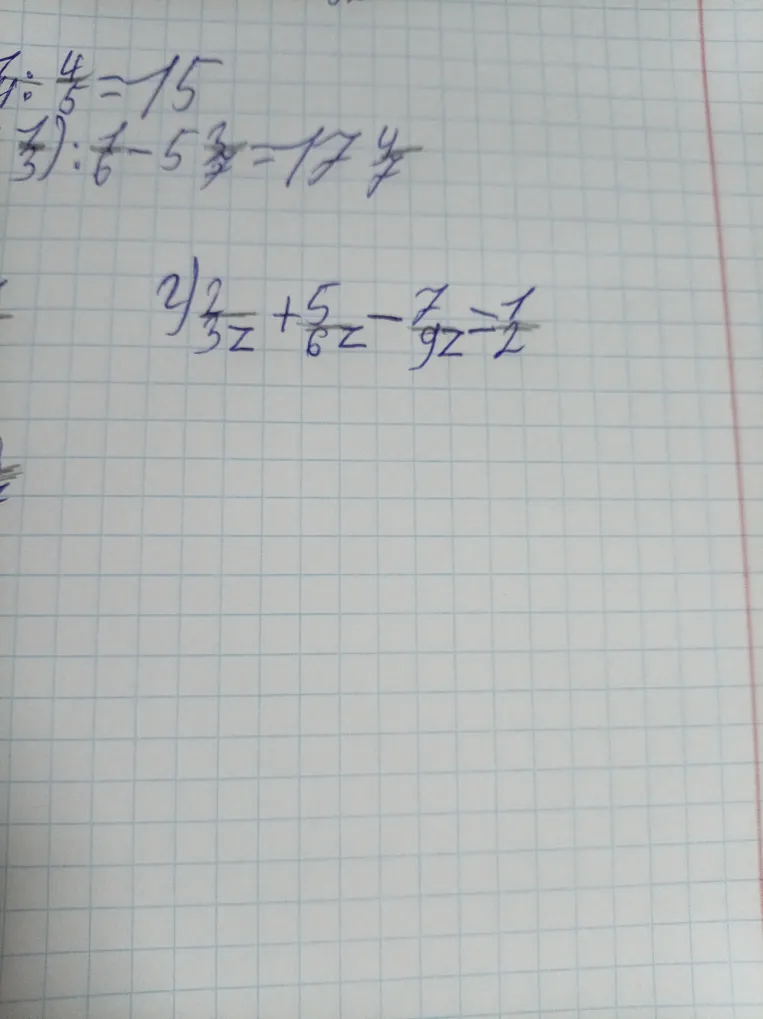 : 4/5 = 15
1/3) : 1/6 - 5 3/7 = 17 4/7
г) 2/3z + 5/6z - 7/9z = 1/2